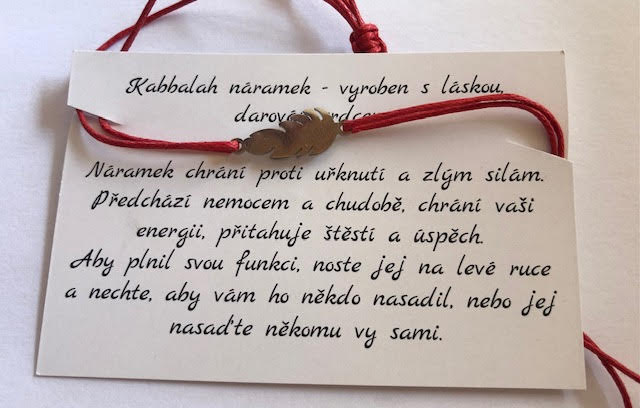 Kabbalah náramek - vyroben s láskou,
Náramek chrání proti uřknutí a zlým silám.
Předchází nemocem a chudobě, chrání vaši
energii, přitahuje štěstí a úspěch.
Aby plnil svou funkci, noste jej na levé ruce
a nechte, aby vám ho někdo nasadil, nebo jej
nasaďte někomu vy sami.